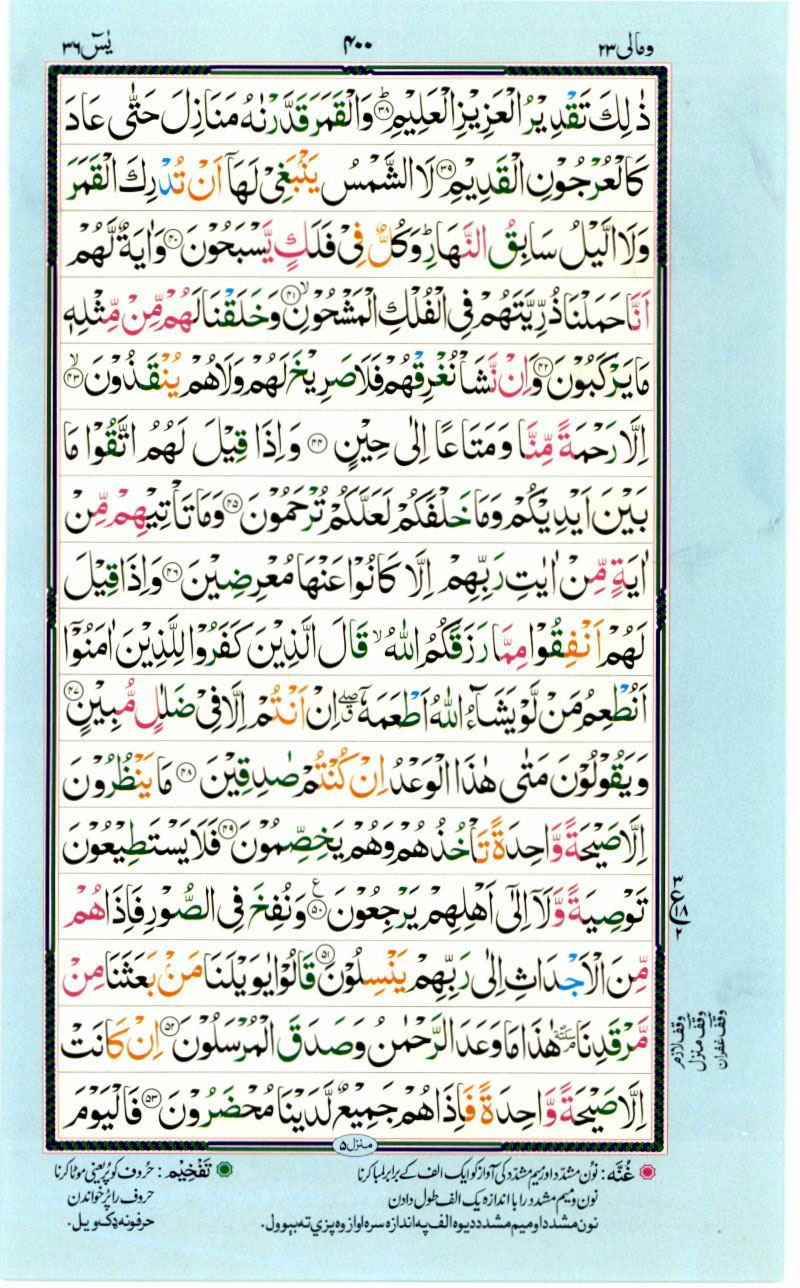 ومالی ۲۳
۴۰۰
يٰسٓ ۳۶
ذٰلِكَ تَقْدِيْرُ الْعَزِيْزِ الْعَلِيْمِ ؕ﴿۳۸﴾ وَالْقَمَرَ قَدَّرْنٰهُ مَنَازِلَ حَتّٰى عَادَ
كَالْعُرْجُوْنِ الْقَدِيْمِ ﴿۳۹﴾ لَا الشَّمْسُ يَنْۢبَغِىْ لَهَاۤ اَنْ تُدْرِكَ الْقَمَرَ
وَلَا الَّيْلُ سَابِقُ النَّهَارِ ؕ وَكُلٌّ فِىْ فَلَكٍ يَّسْبَحُوْنَ ﴿۴۰﴾ وَاٰيَةٌ لَّهُمْ
اَنَّا حَمَلْنَا ذُرِّيَّتَهُمْ فِى الْفُلْكِ الْمَشْحُوْنِ ۙ﴿۴۱﴾ وَخَلَقْنَا لَهُمْ مِّنْ مِّثْلِهٖ
مَا يَرْكَبُوْنَ ﴿۴۲﴾ وَاِنْ نَّشَاْ نُغْرِقْهُمْ فَلَا صَرِيْخَ لَهُمْ وَلَا هُمْ يُنْقَذُوْنَ ۙ﴿۴۳﴾
اِلَّا رَحْمَةً مِّنَّا وَمَتَاعًا اِلٰى حِيْنٍ ﴿۴۴﴾ وَاِذَا قِيْلَ لَهُمُ اتَّقُوْا مَا
بَيْنَ اَيْدِيْكُمْ وَمَا خَلْفَكُمْ لَعَلَّكُمْ تُرْحَمُوْنَ ﴿۴۵﴾ وَمَا تَاْتِيْهِمْ مِّنْ
اٰيَةٍ مِّنْ اٰيٰتِ رَبِّهِمْ اِلَّا كَانُوْا عَنْهَا مُعْرِضِيْنَ ﴿۴۶﴾ وَاِذَا قِيْلَ
لَهُمْ اَنْفِقُوْا مِمَّا رَزَقَكُمُ اللّٰهُ ۙ قَالَ الَّذِيْنَ كَفَرُوْا لِلَّذِيْنَ اٰمَنُوْۤا
اَنُطْعِمُ مَنْ لَّوْ يَشَآءُ اللّٰهُ اَطْعَمَهٗۤ ۖ ق اِنْ اَنْتُمْ اِلَّا فِىْ ضَلٰلٍ مُّبِيْنٍ ﴿۴۷﴾
وَيَقُوْلُوْنَ مَتٰى هٰذَا الْوَعْدُ اِنْ كُنْتُمْ صٰدِقِيْنَ ﴿۴۸﴾ مَا يَنْظُرُوْنَ
اِلَّا صَيْحَةً وَّاحِدَةً تَاْخُذُهُمْ وَهُمْ يَخِصِّمُوْنَ ﴿۴۹﴾ فَلَا يَسْتَطِيْعُوْنَ
تَوْصِيَةً وَّلَاۤ اِلٰٓى اَهْلِهِمْ يَرْجِعُوْنَ ع﴿۵۰﴾ وَنُفِخَ فِى الصُّوْرِ فَاِذَا هُمْ
۳ ع ۱۸ ۲
مِّنَ الْاَجْدَاثِ اِلٰى رَبِّهِمْ يَنْسِلُوْنَ ﴿۵۱﴾ قَالُوْا يٰوَيْلَنَا مَنْۢ بَعَثَنَا مِنْ
مَّرْقَدِنَا ۘ سكتة هٰذَا مَا وَعَدَ الرَّحْمٰنُ وَصَدَقَ الْمُرْسَلُوْنَ ﴿۵۲﴾ اِنْ كَانَتْ
وقف لازم
وقف منزل
وقف غفران
اِلَّا صَيْحَةً وَّاحِدَةً فَاِذَا هُمْ جَمِيْعٌ لَّدَيْنَا مُحْضَرُوْنَ ﴿۵۳﴾ فَالْيَوْمَ
منزل ۵
غُنَّه: نون مشدّد اور میم مشدّد کی آواز کو ایک الف کے برابر لمبا کرنا
نون و میم مشدد را با اندازه یک الف طول دادن
نون مشدد او میم مشدد دیوه الف په اندازه سره اواز وه پزي ته ببوول.
تَفْخِيْم: حروف کو پُر یعنی موٹا کرنا
حروف را پُر خواندن
حرفونه ډک ویل.